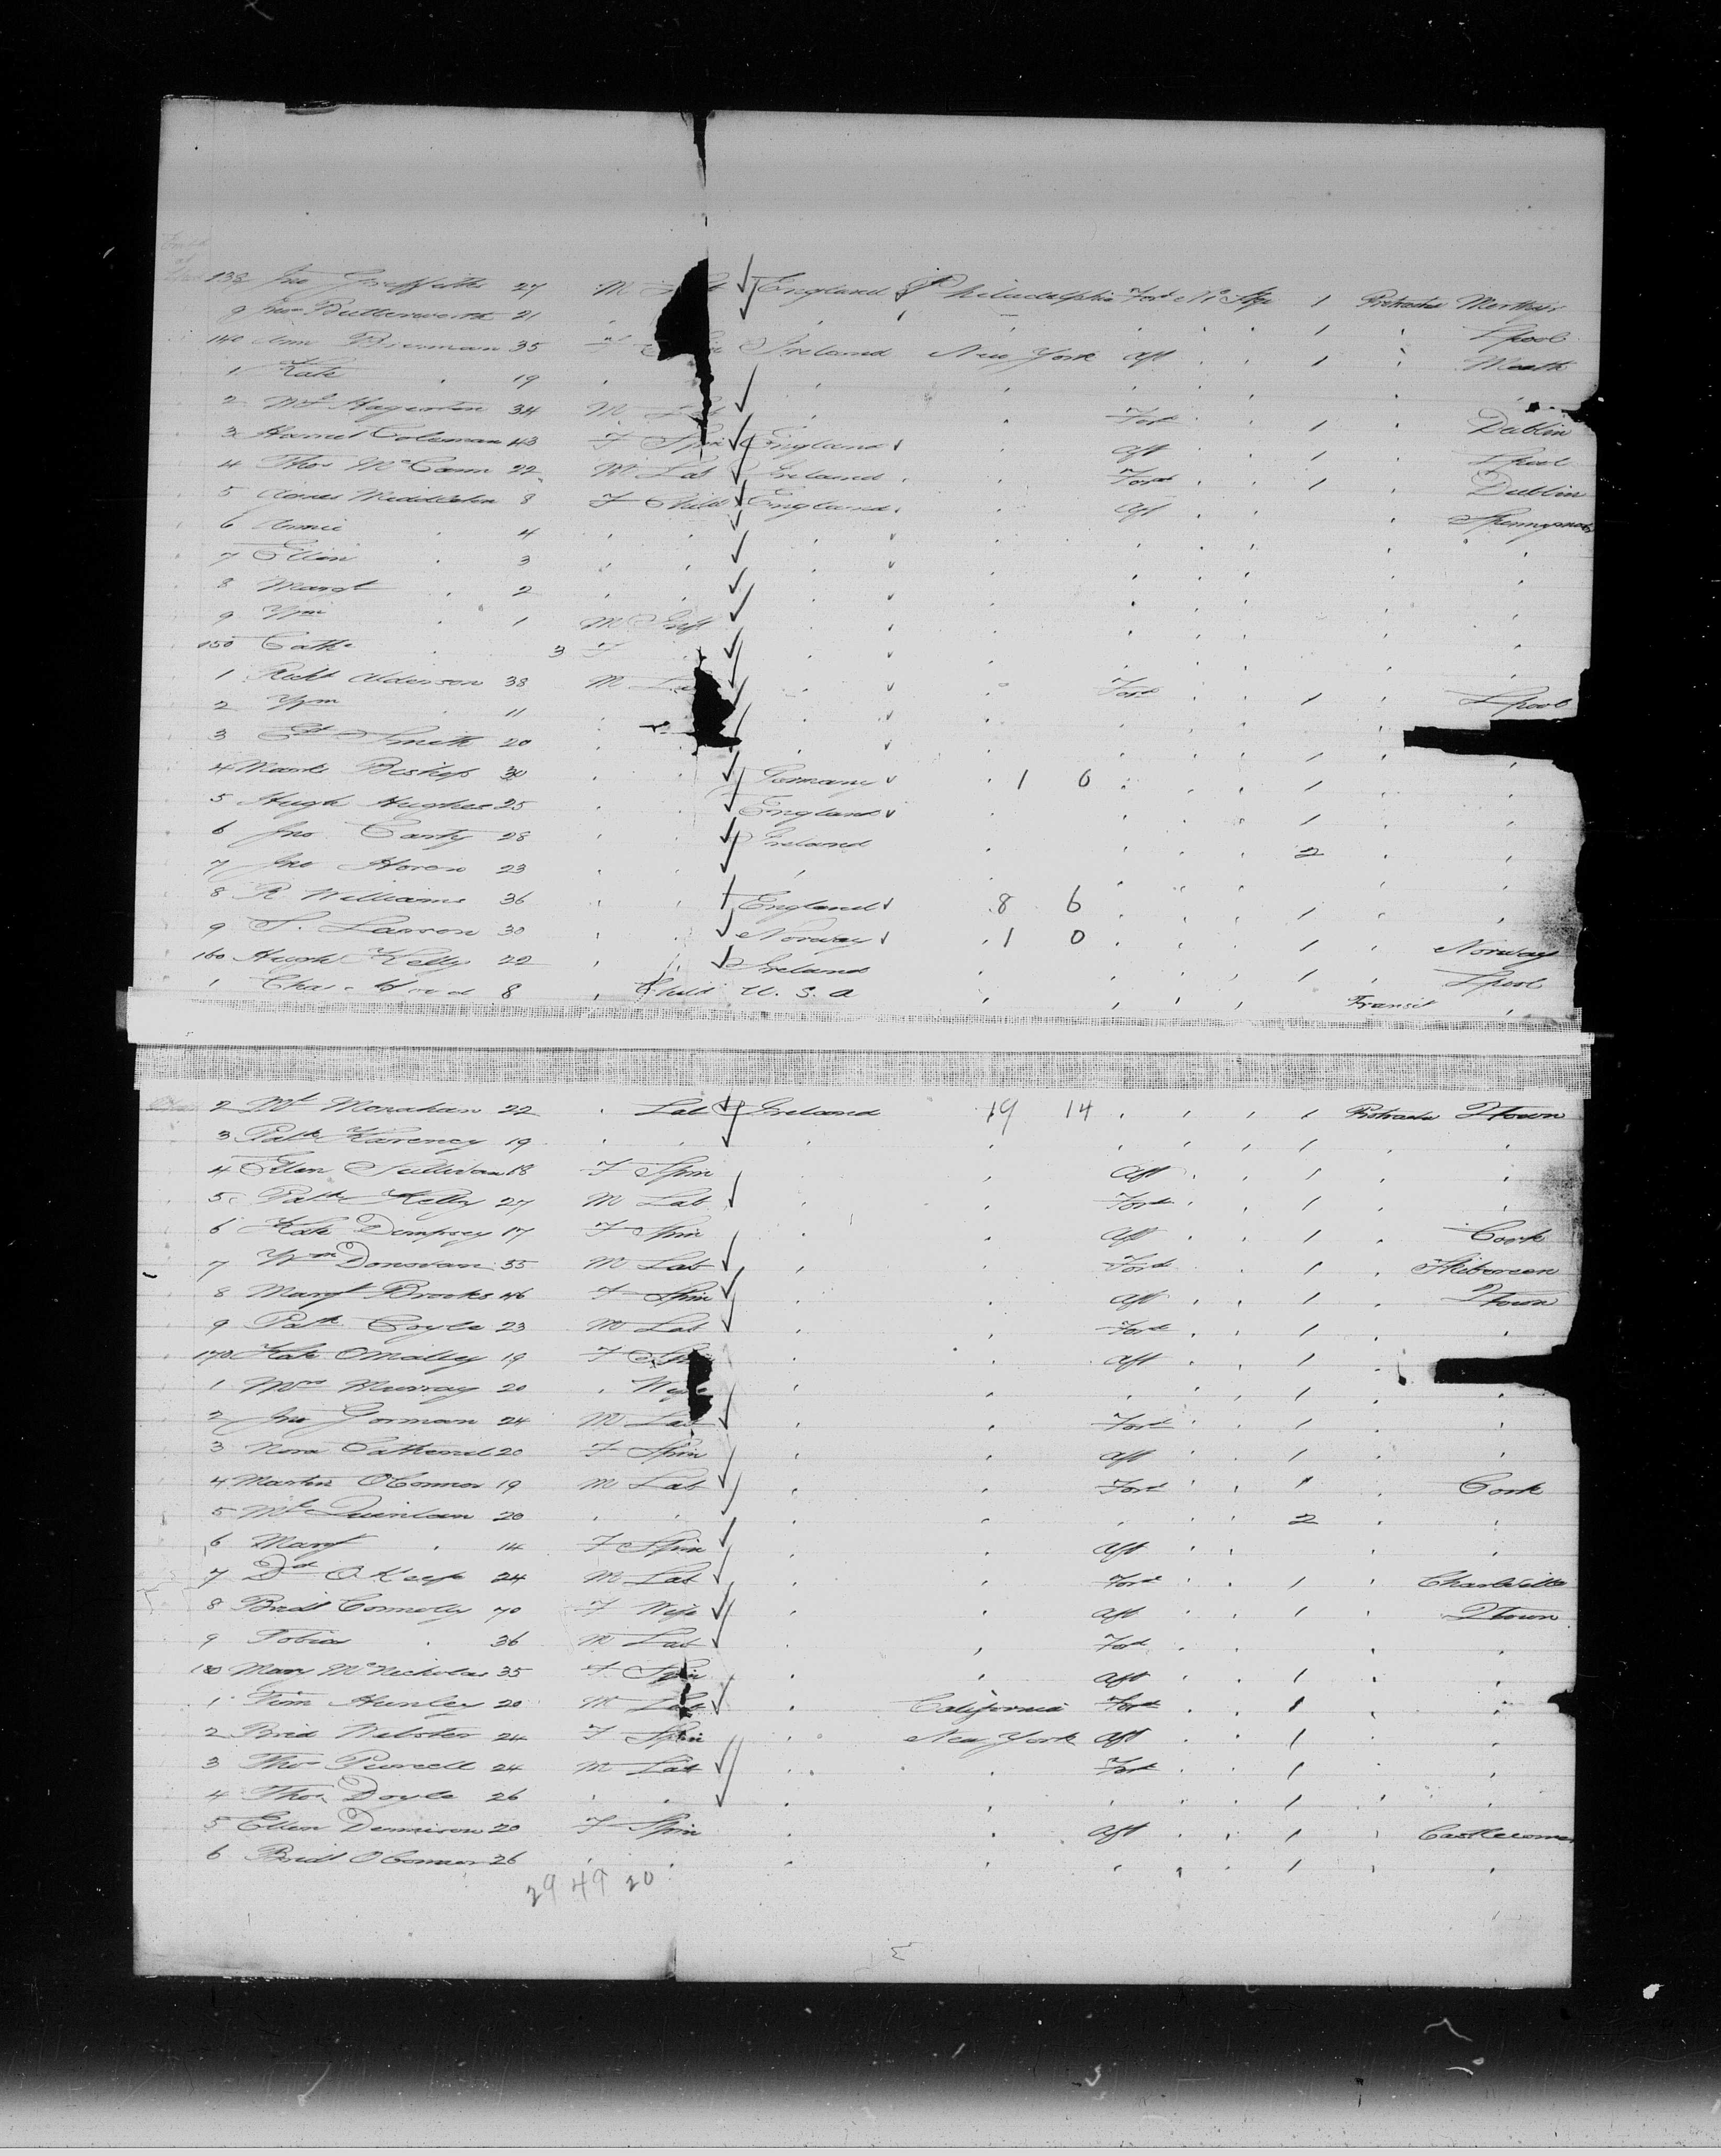 138 Jno Griffiths 27 M England Philadelphia Ford No 1 Stge 1 Protracted Merthyr
9 Jno Butterworth 21 " " " " " " 1 " Lpool
140 Ann Brerman 35 F Spin Ireland New York Aft " " 1 " Meath
1 Kate " 19 " " " " " "
2 Mt Hagerton 34 M Lab " " Ford " " 1 " Dublin
3 Harriet Coleman 43 F Spin England " Aft " " 1 " Lpool
4 Thos McCann 22 M Lab Ireland " Ford " " 1 " Dublin
5 Agnes Middleton 8 F Child England " Aft " " "
6 Annie " 4 " " " " " " " " "
7 Ellen " 3 " " " " " " " " "
8 Margt " 2 " " " " " " " " "
9 Wm " 1 M Inft " " " " " " "
150 Cathe " 3 F " " " " " " " "
1 Richd Alderson 38 M " " Ford " " 1 " Lpool
2 Wm " 11 " " " " " "
3 Ed Smith 20 " " " " " " 1 "
4 Mark Bishop 30 " " Germany 1 0 " " " 1 " "
5 Hugh Hughes 25 " England " " " " 1 " "
6 Jno Carty 28 " Ireland " " " " 2 " "
7 Jno Horen 23 " " " " " " " " "
8 R Williams 36 " " England 8 6 " " " 1 " "
9 S. Larson 30 " " Norway 1 0 " " " 1 " Norway
160 Hugh Kelly 22 " " Ireland " " " " 1 " Lpool
1 Chas 8 " Child U.S.A " " " " Transit "
2 Mt Monahan 22 " Lab Ireland 19 14 " " " 1 Protracted Qtown
3 Patk Kaveney 19 " " " " " " " 1 " "
4 Ellen Sullivan 18 F Spin " " Aft " " 1 " "
5 Patk Kelly 27 M Lab " " Ford " " 1 " "
6 Kate Dempsey 17 F Spin " " Aft " " 1 " Cork
7 Wm Donovan 55 M Lab " " Ford " 1 " Skibereen
8 Margt Brooks 46 F Spin " " Aft " " 1 " Qtown
9 Patk Coyle 23 M Lab " " Ford " " 1 " "
170 Kate OMalley 19 F Spin " " Aft " " 1 "
1 Mrs Murray 20 " Wife " " " " " 1 "
2 Jno Gorman 24 M Lab " " Ford " " 1 " "
3 Nora 20 F Spin " " Aft " " 1 " "
4 Martin OConnor 19 M Lab " " Ford " " 1 " Cork
5 Mt Quinlan 20 " " " " " " 2 " "
6 Margt " 14 F Spin " " Aft " " "
7 Dd O'Keefe 24 M Lab " Ford " " 1 " Charleville
8 Bridt Connolly 70 F Wife " " Aft " " 1 " Qtown
9 Tobias " 36 M Lab " " Ford " " "
180 Mary McNicholas 35 F Spin " " Aft " " 1 " "
1 Tim Hunley 20 M Lab " California Ford " " 1 " "
2 Brid Webster 24 F Spin " New York Aft " " 1 " "
3 Thos Purcell 24 M Lab " " Ford " " 1 "
4 Thos Doyle 26 " " " " " " " 1 " "
5 Ellen Dennison 20 F Spin " " Aft " " 1 " Castlecomer
6 Bridt OConnor 26 " " " " " " " 1 " "
29 49 20